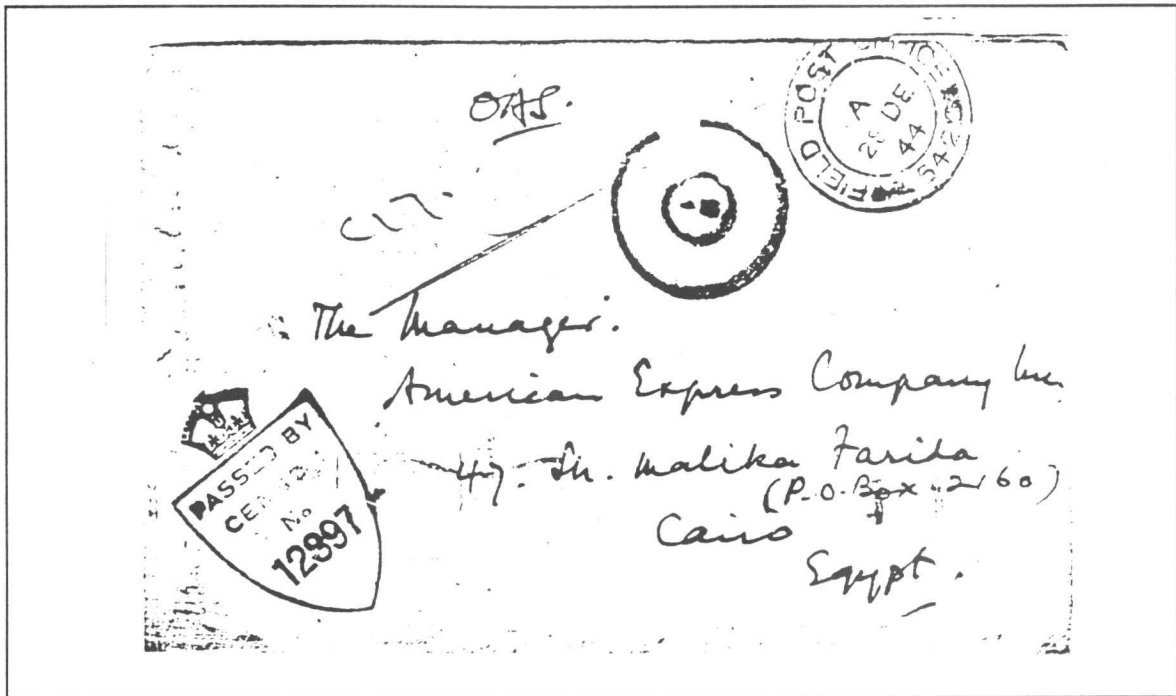 OAS.
FIELD POST OFFICE 542
A
28 DE
44
The Manager.
American Express Company Inc
47. Sh. Malika Farida
(P.O. Box 2160)
Cairo
Egypt.
PASSED BY
CENSOR
No
12997